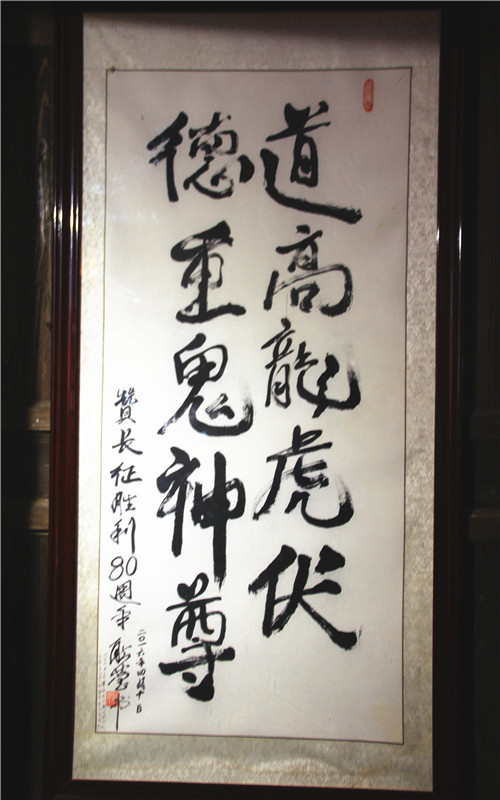 道高龍虎伏
德重鬼神尊
赞长征胜利80週年
二〇一六年四月十日